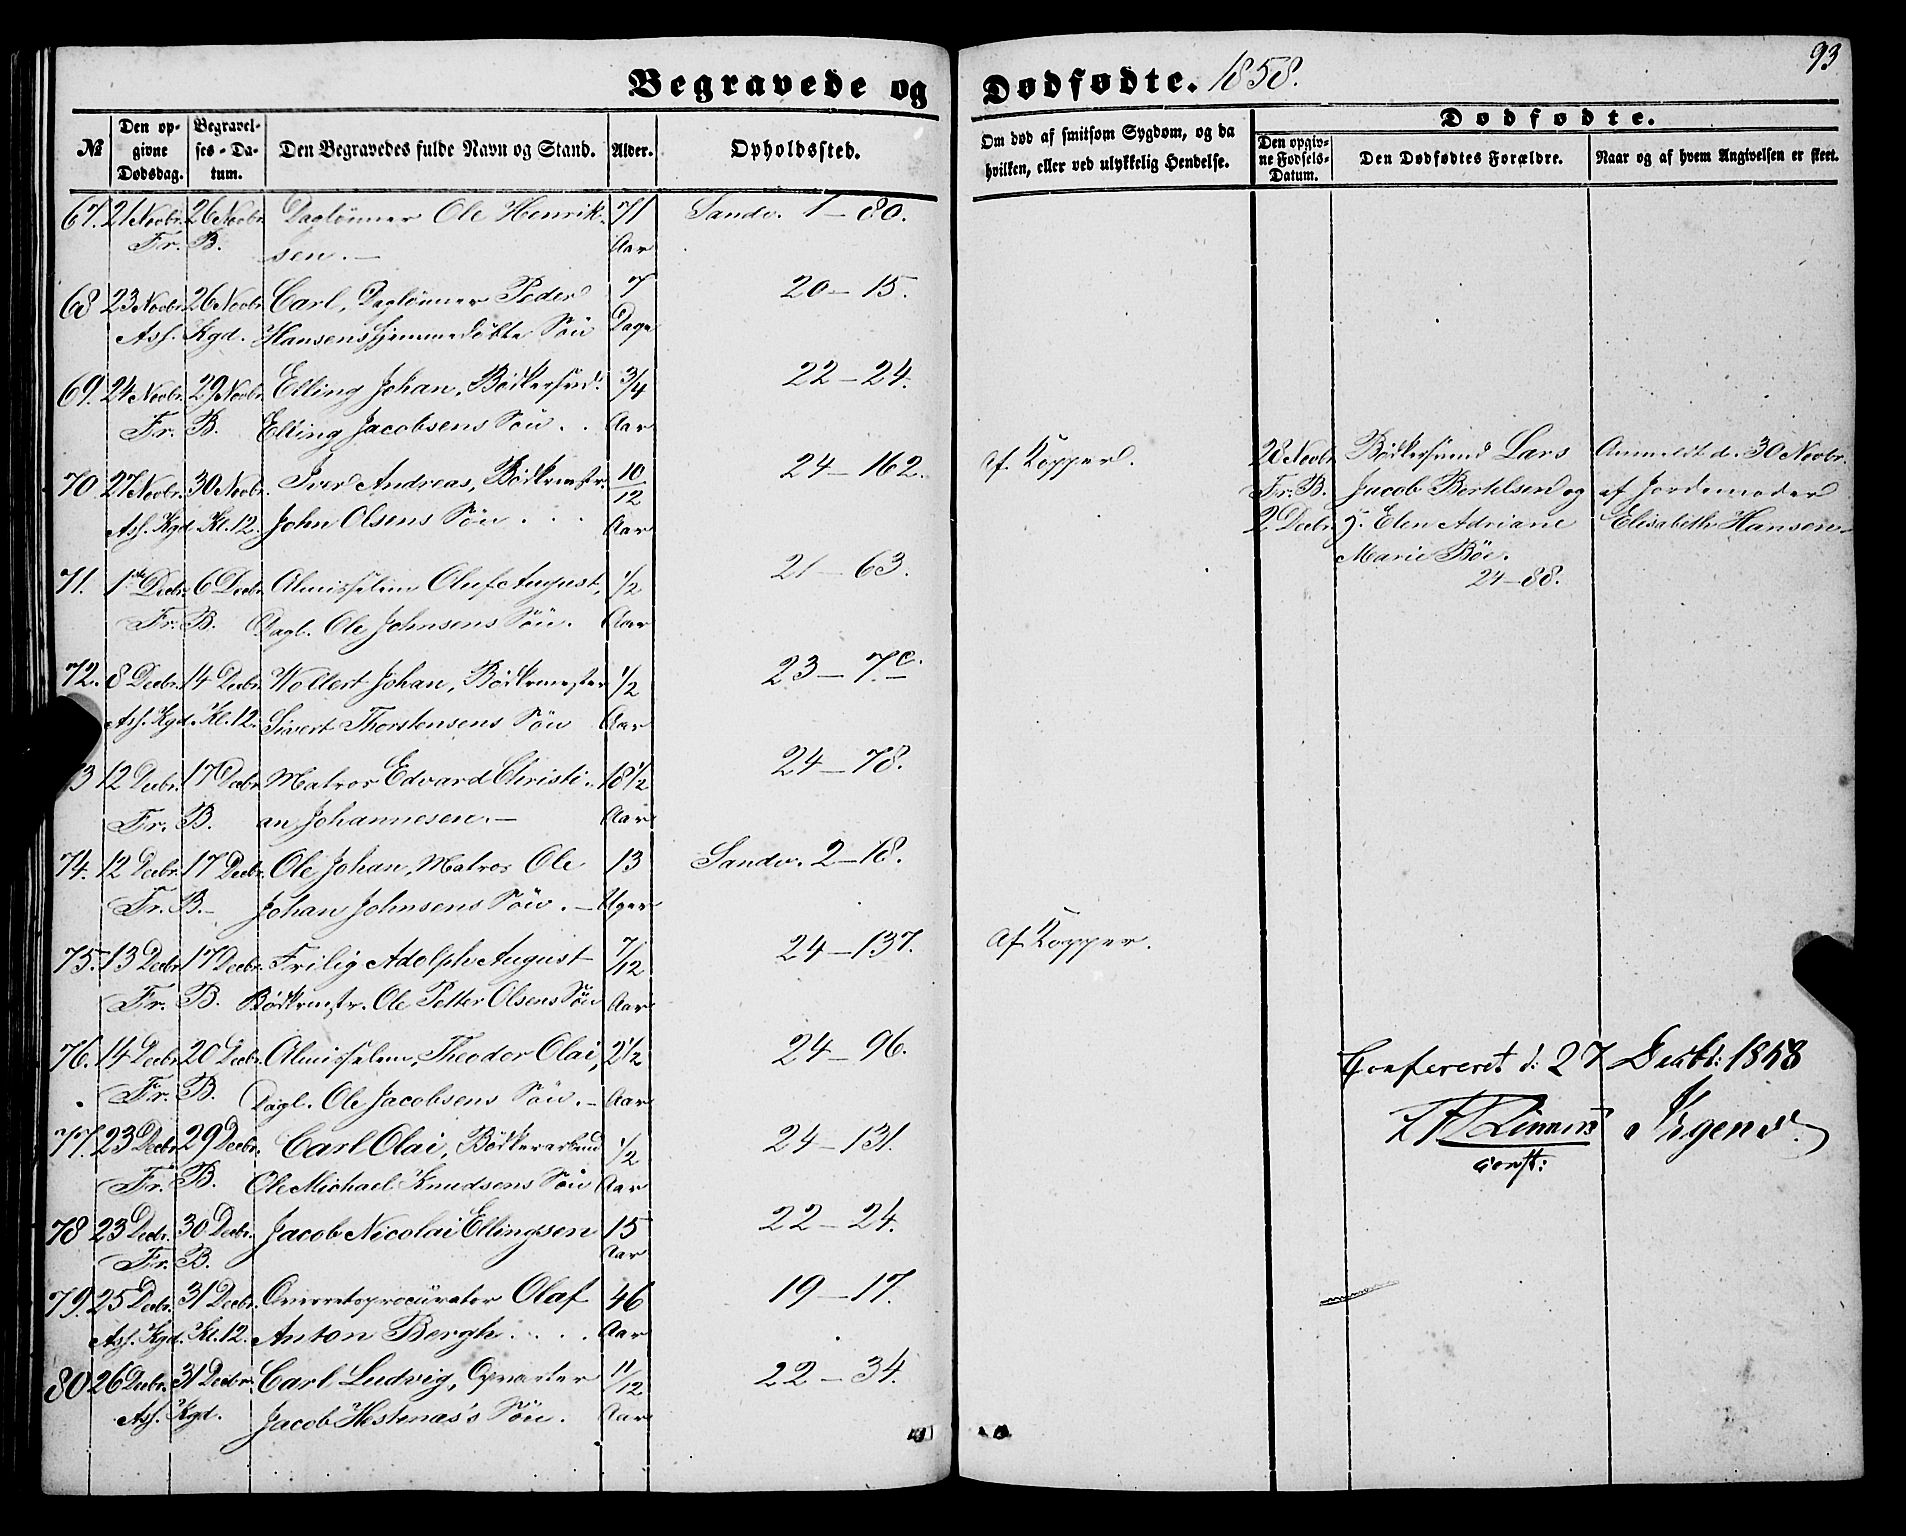 93
Begravede og Dødfødte. 1858.
№
Den opgivne Dødsdag.
Begravelses-Datum.
Den Begravedes fulde Navn og Stand.
Alder.
Opholdssted.
Om død af smitsom Sygdom, og da hvilken, eller ved ulykkelig Hendelse.
Dødfødte.
Den opgivne Fødsels-Datum.
Den Dødfødtes Forældre.
Naar og af hvem Angivelsen er skeet.
67. 21 Novbr. 26 Novbr. Daglönner Ole Henrik- 71 Sandv. 1-80.
Fr. B. sen. Aar
68 23 Novbr. 26 Novbr. Carl, Daglönner Peder 7 20-15.
Ass. Kgd. Hansens hjemmedöbte Sön Dage
69. 24 Novbr. 29 Novbr. Elling Johan, Bödkersvd. 3/4 22-24.
Fr. B. Elling Jacobsens Sön. Aar
70. 27 Novbr. 30 Novbr. Iver Andreas, Bödkermstr. 10/12 24-162. af Kopper.
Ass. Kgd. Kl. 12. John Olsens Sön. Aar
71. 1ste Decbr. 6 Decbr. Almisselem Oluf August, 1/2 21-63.
Fr. B. Dagl. Ole Johnsens Sön. Aar
72. 8 Decbr. 14 Decbr. Wollert Johan, Bödkermester 1/2 23-7.c.
Ass. Kgd. Kl. 12. Sivert Thorstensens Sön Aar
73 12 Decbr. 17 Decbr. Matros Edvard Christi- 18 1/2 24-78.
Fr. B. an Johannesen. Aar
74. 12 Decbr. 17 Decbr. Ole Johan, Matros Ole 13 Sandv. 2-18.
Fr. B. Johan Johnsens Sön. Uger
75. 13 Decbr. 17 Decbr. Frilig Adolph August 7/12 24-137. Af Kopper.
Fr. B. Bödkermstr. Ole Petter Olsens Sön Aar
76. 14 Decbr. 20 Decbr. Almisselem, Theodor Olai, 2 1/2 24-96.
Fr. B. Dagl. Ole Jacobsens Sön. Aar
77. 23 Decbr. 29 Decbr. Carl Olai, Bödkerarbeid 1/2 24-131.
Fr. B. Ole Michael Knudsens Sön Aar
78 23 Decbr. 30 Decbr. Jacob Nicolai Ellingsen 15 22-24.
Fr. B. Aar
79. 25 Decbr. 31 Decbr. Overretsprocurator Olaf 46 19-17.
Ass. Kgd. Kl. 12. Anton Bergh. Aar
80 26 Decbr. 31 Decbr. Carl Ludvig, Opvarter 11/12 22-34.
Ass. Kgd. Jacob Hestenæs's Sön. Aar
28 Novbr. Bödkersvend Lars Anmeldt d. 30 Novbr.
Fr. B. Jacob Bertelsen og af Jordemoder
2 Decbr. H. Elen Adriane Elisabeth Hansen
Marie Böe.
24-88.
Confereret d: 27 Decbr: 1858
const: